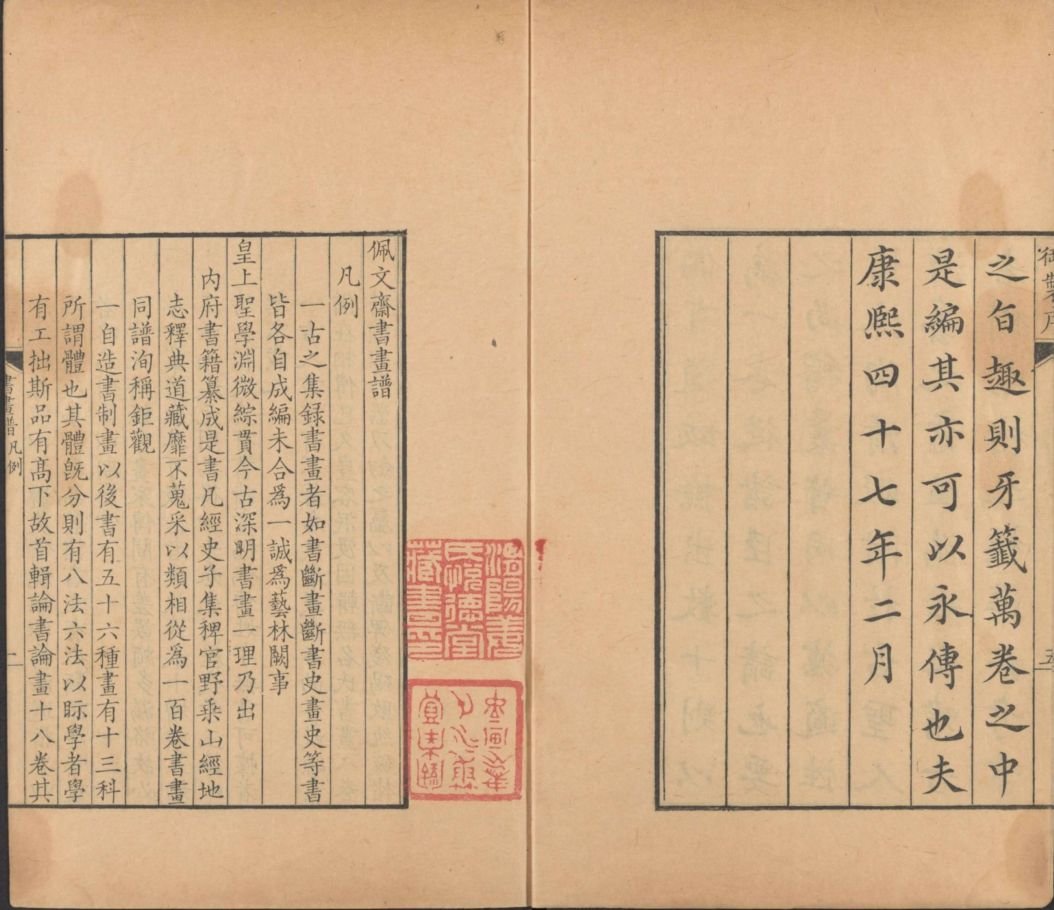 御製序
五
之旨趣則牙籤萬卷之中
是編其亦可以永傳也夫
康熙四十七年二月
佩文齋書畫譜
凡例
一古之集録書畫者如書斷畫斷書史畫史等書
皆各自成編未合爲一誠爲藝林闕事
皇上聖學淵微綜貫今古深明書畫一理乃出
內府書籍纂成是書凡經史子集稗官野乘山經地
志釋典道藏靡不蒐采以類相從為一百卷書畫
同譜洵稱鉅觀
一自造書制畫以後書有五十六種畫有十三科
所謂體也其體既分則有八法六法以眎學者學
有工拙斯品有髙下故首輯論書論畫十八卷其
書畫譜凡例
一